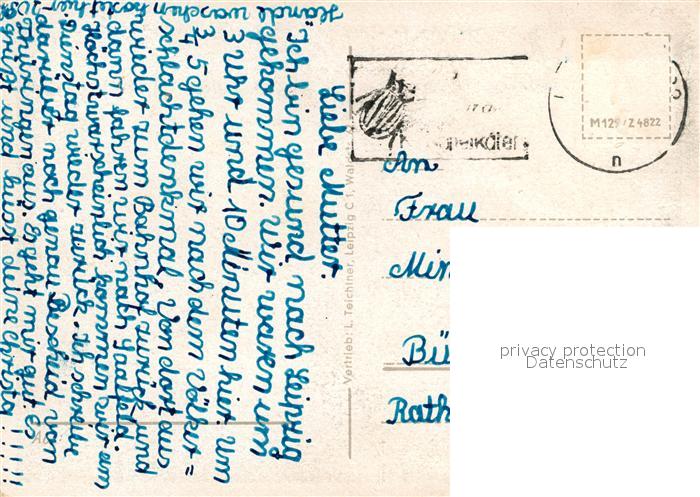 Liebe Mutter.
Ich bin gesund nach Leipzig
gekommen. Wir waren um
3 Uhr und 10 Minuten hier. Um
3/4 5 gehen wir nach dem Völker=
schlachtdenkmal. Von dort aus
wieder zum Bahnhof zurück und
dann fahren wir nach Saalfeld.
Höchstwarscheinlich kommen wir am
Dinstag wieder zurück. Ich schreibe
darüber noch genau Bescheid von
Thüringen aus. Es geht mir gut. Es
grüßt und küsst deine Christa!!!!!
Hände waschen kostet hier
An
Frau
Min
Bü
Rath
Vertrieb: L. Teichner, Leipzig C 1
M 129 / Z 4822
n
privacy protection
Datenschutz